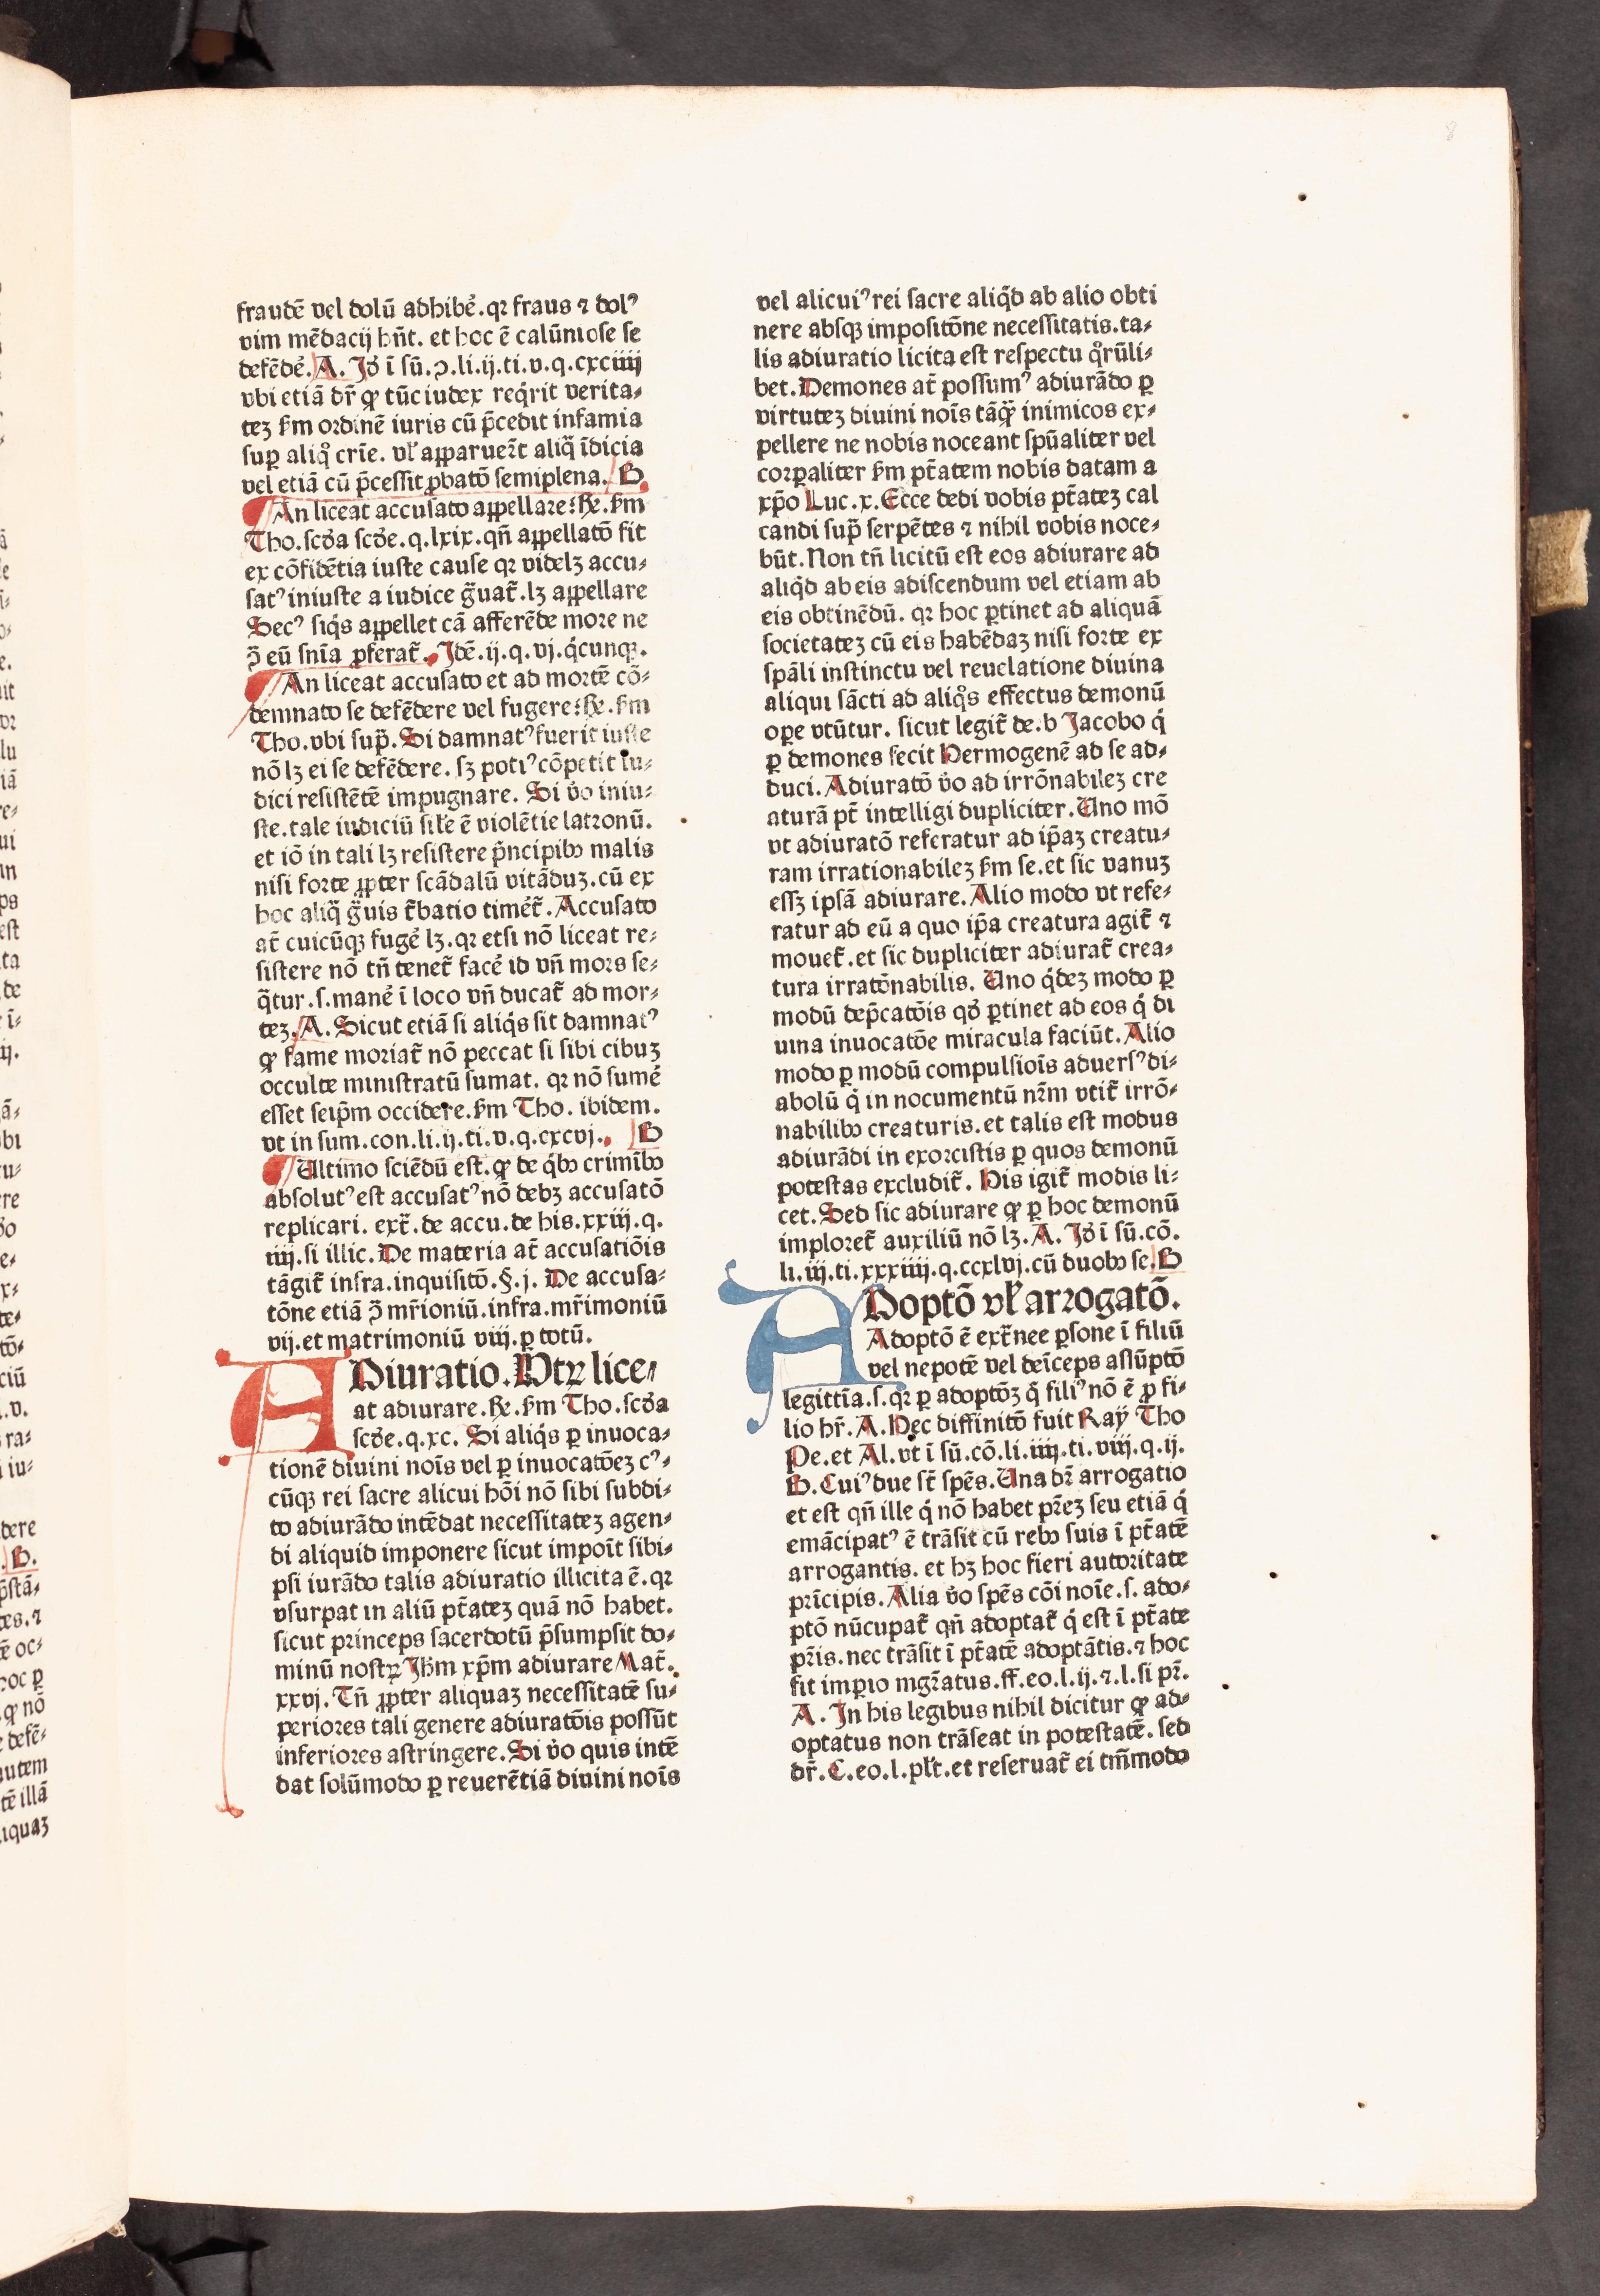 fraudē vel dolū adhibé.qꝛ fraus ⁊ dolꝰ
vim mēdacij hn̄t. et hoc ē calūniose se
defēdé. A. Jo̓ ī sū.ꝯ.li.ij.ti.v.q.cxciiij
vbi etiā dr̄ ꝙ tūc iudex reqͥrit verita⸗
teꝫ ẜm ordinē iuris cū p̄cedit infamia
suꝑ aliqͦ crīe. vl̓ apparuer̄t aliqͣ īdicia
vel etiā cū p̄cessit ꝓbatō semiplena. B.
An liceat accusato appellare: ℞. ẜm
Tho.scd̓a scd̓e.q.lxix.qn̄ appellatō fit
ex cōfidētia iuste cause qꝛ videlꝫ accu⸗
satꝰ iniuste a iudice gͣuat̄.lꝫ appellare
Secꝰ siqͥs appellet cā afferēde more ne
ꝯ̄ eū sn̄ia ꝓferat̄. Jdē.ij.q.vj.qͥcunqꝫ.
An liceat accusato et ad mortē cō⸗
demnato se defēdere vel fugere: ℞. ẜm
Tho.vbi sup̄. Si damnatꝰ fuerit iuste
nō lꝫ ei se defēdere. sꝫ potiꝰ cōpetit iu⸗
dici resistētē impugnare. Si v̓o iniu⸗
ste.tale iudiciū sil̓e ē violētie latronū.
et iō in tali lꝫ resistere p̄ncipibꝰ malis
nisi forte ꝓpter scādalū vitāduꝫ.cū ex
hoc aliqͣ gͣuis t̄batio timét̄. Accusato
at̄ cuicūqꝫ fugé lꝫ.qꝛ etsi nō liceat re⸗
sistere nō tn̄ tenet̄ facé id vn̄ mors se⸗
qͣtur.s.mané ī loco vn̄ ducat̄ ad mor⸗
teꝫ. A. Sicut etiā si aliqͥs sit damnatꝰ
ꝙ fame moriat̄ nō peccat si sibi cibuꝫ
occulte ministratū sumat. qꝛ nō sumé
esset seip̄m occidere.ẜm Tho. ibidem.
vt in sum.con.li.ij.ti.v.q.cxcvj. B
Ultimo sciēdū est.ꝙ de qͥbꝰ crimībꝰ
absolutꝰ est accusatꝰ nō debꝫ accusatō
replicari. ext̄. de accu.de his.xxiij.q.
iiij.si illic. De materia at̄ accusatiōis
tāgit̄ infra.inquisitō.§.j. De accusa⸗
tōne etiā ꝯ̄ mr̄ioniū.infra.mr̄imoniū
vij.et matrimoniū viij.ꝑ totū.
ADiuratio. Utꝝ lice⸗
at adiurare. ℞. ẜm Tho.scd̓a
scd̓e.q.xc. Si aliqͥs ꝑ inuoca⸗
tionē diuini noīs vel ꝑ inuocatōeꝫ cꝰ⸗
cūqꝫ rei sacre alicui hōi nō sibi subdi⸗
to adiurādo intēdat necessitateꝫ agen⸗
di aliquid imponere sicut impoīt sibi⸗
psi iurādo talis adiuratio illicita ē.qꝛ
vsurpat in aliū pt̄ateꝫ quā nō habet.
sicut princeps sacerdotū p̄sumpsit do⸗
minū nostꝝ Jhm xp̄m adiurare Mat̄.
xxvj. Tn̄ ꝓpter aliquaꝫ necessitatē su⸗
periores tali genere adiuratōis possūt
inferiores astringere. Si v̓o quis intē
dat solūmodo ꝑ reuerētiā diuini noīs
vel alicuiꝰ rei sacre aliqͥd ab alio obti
nere absqꝫ impositōne necessitatis.ta⸗
lis adiuratio licita est respectu qͦrūli⸗
bet. Demones at̄ possumꝰ adiurādo ꝑ
virtuteꝫ diuini noīs tāqͣꝫ inimicos ex⸗
pellere ne nobis noceant spūaliter vel
corꝑaliter ẜm pt̄atem nobis datam a
xp̄o Luc.x. Ecce dedi vobis pt̄ateꝫ cal
candi sup̄ serpētes ⁊ nihil vobis noce⸗
būt. Non tn̄ licitū est eos adiurare ad
aliqͥd ab eis adiscendum vel etiam ab
eis obtinēdū. qꝛ hoc ꝑtinet ad aliquā
societateꝫ cū eis habēdaꝫ nisi forte ex
spāli instinctu vel reuelatione diuina
aliqui sācti ad aliqͦs effectus demonū
oꝑe vtūtur. sicut legit̄ de.b Jacobo qͥ
ꝑ demones fecit Hermogenē ad se ad⸗
duci. Adiuratō v̓o ad irrōnabileꝫ cre
aturā pt̄ intelligi dupliciter. Uno mō
vt adiuratō referatur ad ip̄aꝫ creatu⸗
ram irrationabileꝫ ẜm se.et sic vanuꝫ
essꝫ ipsā adiurare. Alio modo vt refe⸗
ratur ad eū a quo ip̄a creatura agit̄ ⁊
mouet̄.et sic dupliciter adiurat̄ crea⸗
tura irratōnabilis. Uno qͥdeꝫ modo ꝑ
modū dep̄catōis qd̓ ꝑtinet ad eos qͥ di
uina inuocatōe miracula faciūt. Alio
modo ꝑ modū compulsioīs aduersꝰ di⸗
abolū qͥ in nocumentū nr̄m vtit̄ irrō⸗
nabilibꝰ creaturis.et talis est modus
adiurādi in exorcistis ꝑ quos demonū
potestas excludit̄. His igit̄ modis li⸗
cet. Sed sic adiurare ꝙ ꝑ hoc demonū
imploret̄ auxiliū nō lꝫ. A. Jo̓ ī sū.cō.
li.iij.ti.xxxiiij.q.ccxlvj.cū duobꝰ se. B
ADoptō vl̓ arrogatō.
Adoptō ē ext̄nee ꝑsone ī filiū
vel nepotē vel deīceps assūptō
legittīa.s.qꝛ ꝑ adoptōꝫ qͥ filiꝰ nō ē ꝓ fi⸗
lio hr̄. A. Hec diffinitō fuit Raẏ Tho
Pe.et Al.vt ī sū.cō.li.iiij.ti.viij.q.ij.
B. Cuiꝰ due st̄ spēs. Una dr̄ arrogatio
et est qn̄ ille qͥ nō habet pr̄eꝫ seu etiā qͥ
emācipatꝰ ē trāsit cū rebꝰ suis ī pt̄atē
arrogantis. et hꝫ hoc fieri autoritate
prīcipis. Alia v̓o spēs cōi noīe.s. ado⸗
ptō nūcupat̄ qn̄ adoptat̄ qͥ est ī pt̄ate
pr̄is.nec trāsit ī pt̄atē adoptātis.⁊ hoc
fit imꝑio mgr̄atus.ff.eo.l.ij.⁊.l.si pr̄.
A. Jn his legibus nihil dicitur ꝙ ad⸗
optatus non trāseat in potestatē. sed
dr̄. C.eo.l.pl̓t.et reseruat̄ ei tm̄modo